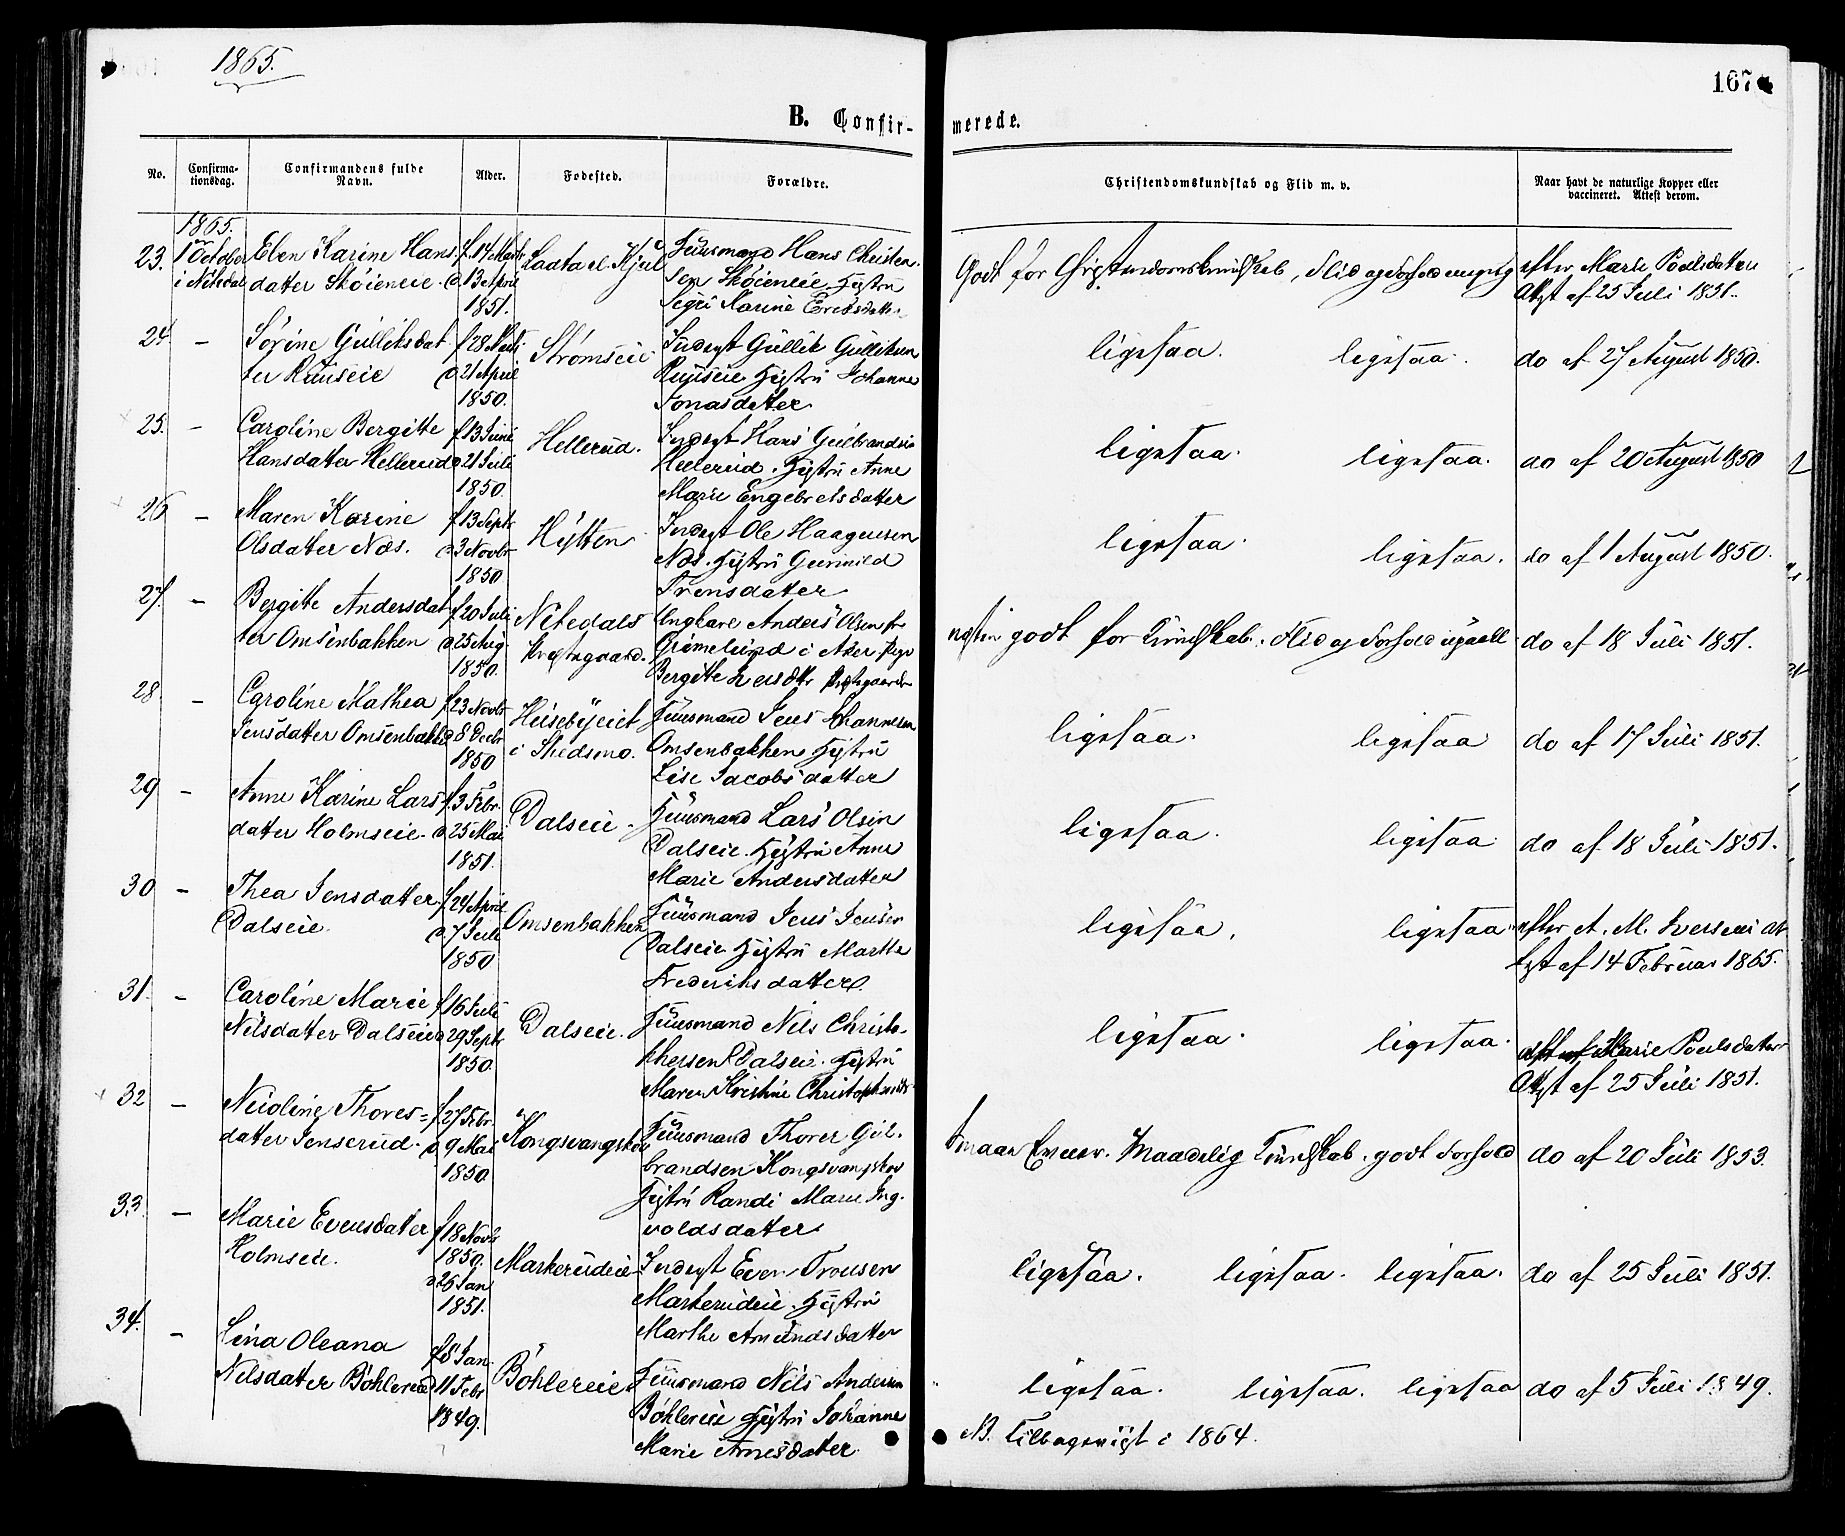 1865.
167
B. Confir-
merede.
No.
Confirma-
tionsdag.
Confirmandens fulde
Navn.
Alder.
Fødested.
Forældre.
Christendomskundskab og Flid m. v.
Naar havt de naturlige Kopper eller
vaccineret. Attest derom.
1865.
23. 1 October Elen Karine Hans f. 14 Marts Huusmand Hans Christen-
i Nitedal datter Skøieneie. d. 13 April sen Skøieneie Hustru
1851. Karine Ericsdatter
Godt for Christendomskundskab, Flid og Forhold efter Marie Poulsdatters
Attst af 25 Juli 1851.
24. – Sørine Gulliksdat f 28 Marts Strømseie Inderst Gullik Gulliksen
ter Ruuseie d 21 April Ruuseie Hustru Johanne
1850. Jonasdatter
ligesaa. ligesaa. do af 27 August 1850.
25. – Caroline Bergitte f 13 Juni Hellerud. Inderst Hans Gulbrandsen
Hansdatter Hellerud d 21 Juli Hellerud. Hustru Anne
1850. Marie Engebretsdatter
ligesaa. ligesaa. do af 20 August 1850
26 – Maren Karine f 13 Septr Hytten Inderst Ole Haagensen
Olsdatter Næs. d 3 Novbr Næs. Hustru Gunnild
1850 Trensdatter
ligesaa. ligesaa. do af 1 August 1850.
27. – Bergitte Andersdat f 20 Juli Nitedals Ungkarl Anders Olsen
ter Omsenbakken d 25 Aug Præstegaard. Grimelund i Aker Pige
1850. Bergitte
godt for Kundskab. Flid og Forhold do af 18 Juli 1851.
28. – Caroline Mathea f 23 Novbr Huusmand Jens Johannesen
Jensdatter Omsenbakke d 8 Decbr i Skedsmo. Omsenbakken Hustru
1850 Lise Jacobsdatter
ligesaa. ligesaa do af 17 Juli 1851.
29 – Anne Karine Lars f. 3 Febr. Dalseie. Huusmand Lars Olsen
datter Holmseie. d. 25 Mai Dalseie. Hustru Anne
1851. Marie Andersdatter
ligesaa. ligesaa do af 18 Juli 1851.
30 – Thea Jensdatter f. 24 April Omsenbakken Huusmand Jens Jensen
Dalseie. d. 7 Juli Dalseie Hustru Marthe
1850 Frederiksdatter.
ligesaa. ligesaa efter A. M. Iversens at
test af 14 Februar 1865.
31. – Caroline Marie f 16 Juli Dalseie. Huusmand Nils Christo-
Nilsdatter Dalseie d 29 Septr phersen Dalseie. Hustru
1850. Maren Kristine
ligesaa. ligesaa. Marie Poulsdatters
Attst af 25 Juli 1851.
32 – Nicoline Thores= f. 27 Febr. Kongsvangskov Huusmand Thorer Gul.
datter Jenserud. d. 9 Mai brandsen Kongsvangskov
1850. Hustru Randi Marie Ing.
voldsdatter
smaae Evner. Maadelig Kundskab. godt Forhold do af 20 Juli 1853.
33. – Marie Evensdatter f 18 Novbr Markerudeie Inderst Even Tronsen
Holmseie. 1850. Markerudeie. Hustru
d 26 Jan Marthe Amundsdatter
1851.
ligesaa. ligesaa. ligesaa. do af 25 Juli 1851.
34. – Lina Oleana f 8 Jan Bøhlereie Huusmand Nils Andersen
Nilsdatter Bøhlereie d 11 Febr Bøhlereie Hustru Johanne
1849. Marie Arnesdatter
ligesaa. ligesaa. ligesaa do af 5 Juli 1849.
NB. Tilbageviist i 1864.